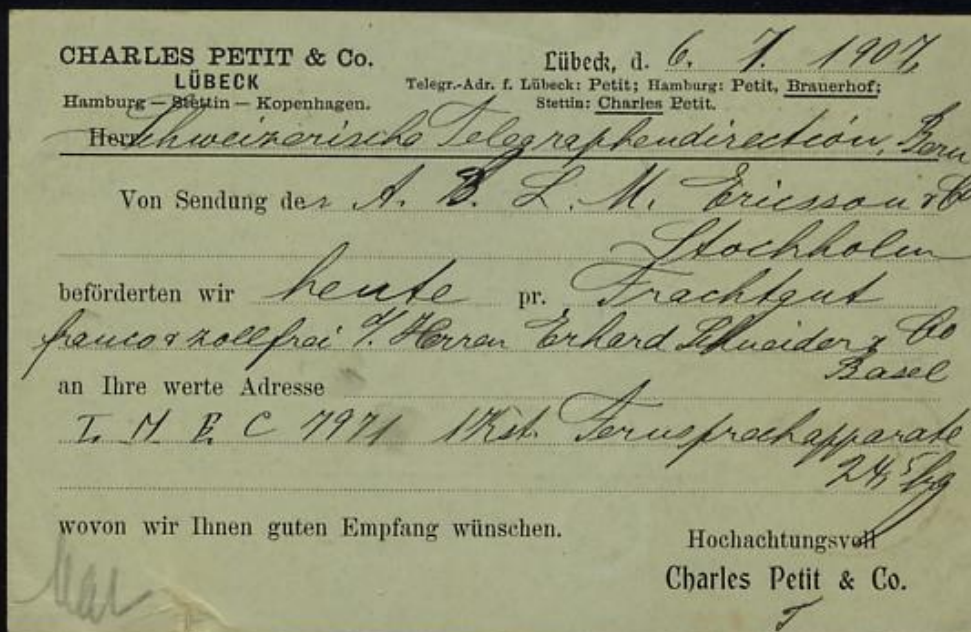 CHARLES PETIT & Co.
LÜBECK
Hamburg — Stettin — Kopenhagen.
Lübeck, d. 6. 7. 1907
Telegr.-Adr. f. Lübeck: Petit; Hamburg: Petit, Brauerhof;
Stettin: Charles Petit.
Herr Schweizerische Telegraphendirection, Bern
Von Sendung der A. B. L. M. Ericsson & Co
Stockholm
beförderten wir heute pr. Frachtgut
franco & zollfrei d/. Herren Erhard Schneider & Co
Basel
an Ihre werte Adresse
7971 1 Kst. Fernsprechapparate
24,5 kg
wovon wir Ihnen guten Empfang wünschen.
Hochachtungsvoll
Charles Petit & Co.